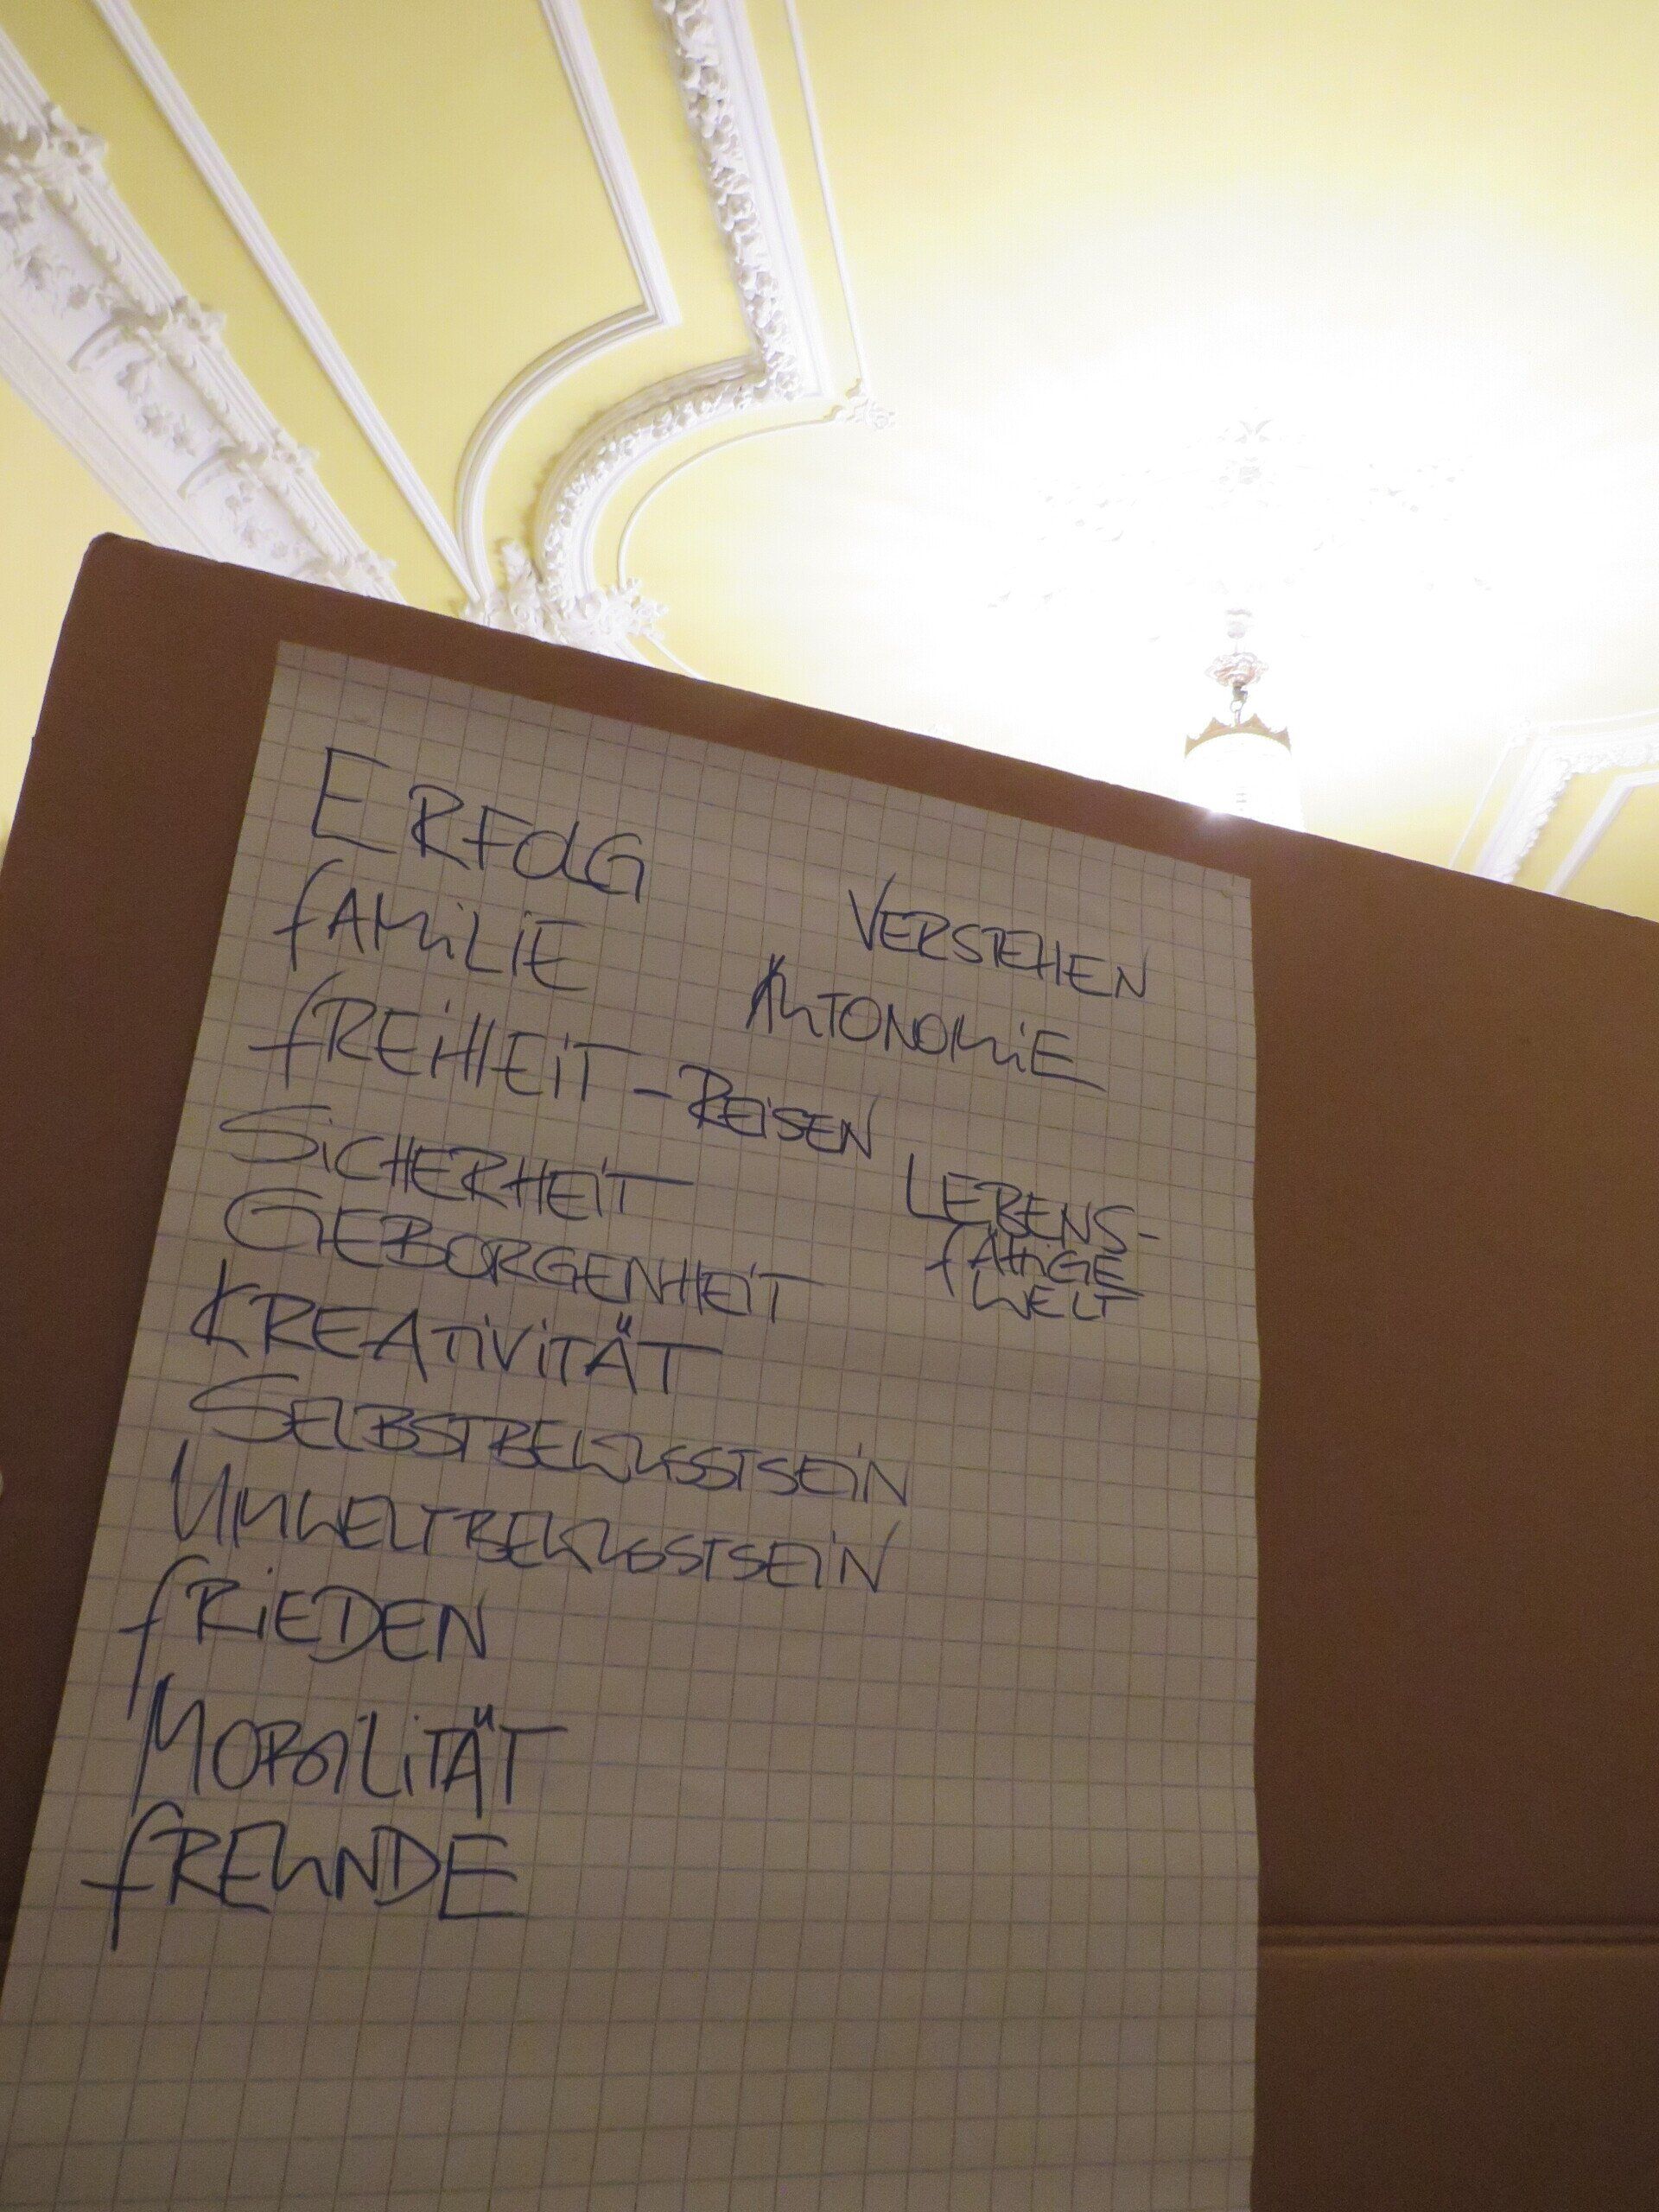 ERFOLG
FAMILIE
FREIHEIT - REISEN
SICHERHEIT
GEBORGENHEIT
KREATIVITÄT
SELBSTBEWUSSTSEIN
UMWELTBEWUSSTSEIN
FRIEDEN
MOBILITÄT
FREUNDE
VERSTEHEN
AUTONOMIE
LEBENS-
FÄHIGE
WELT